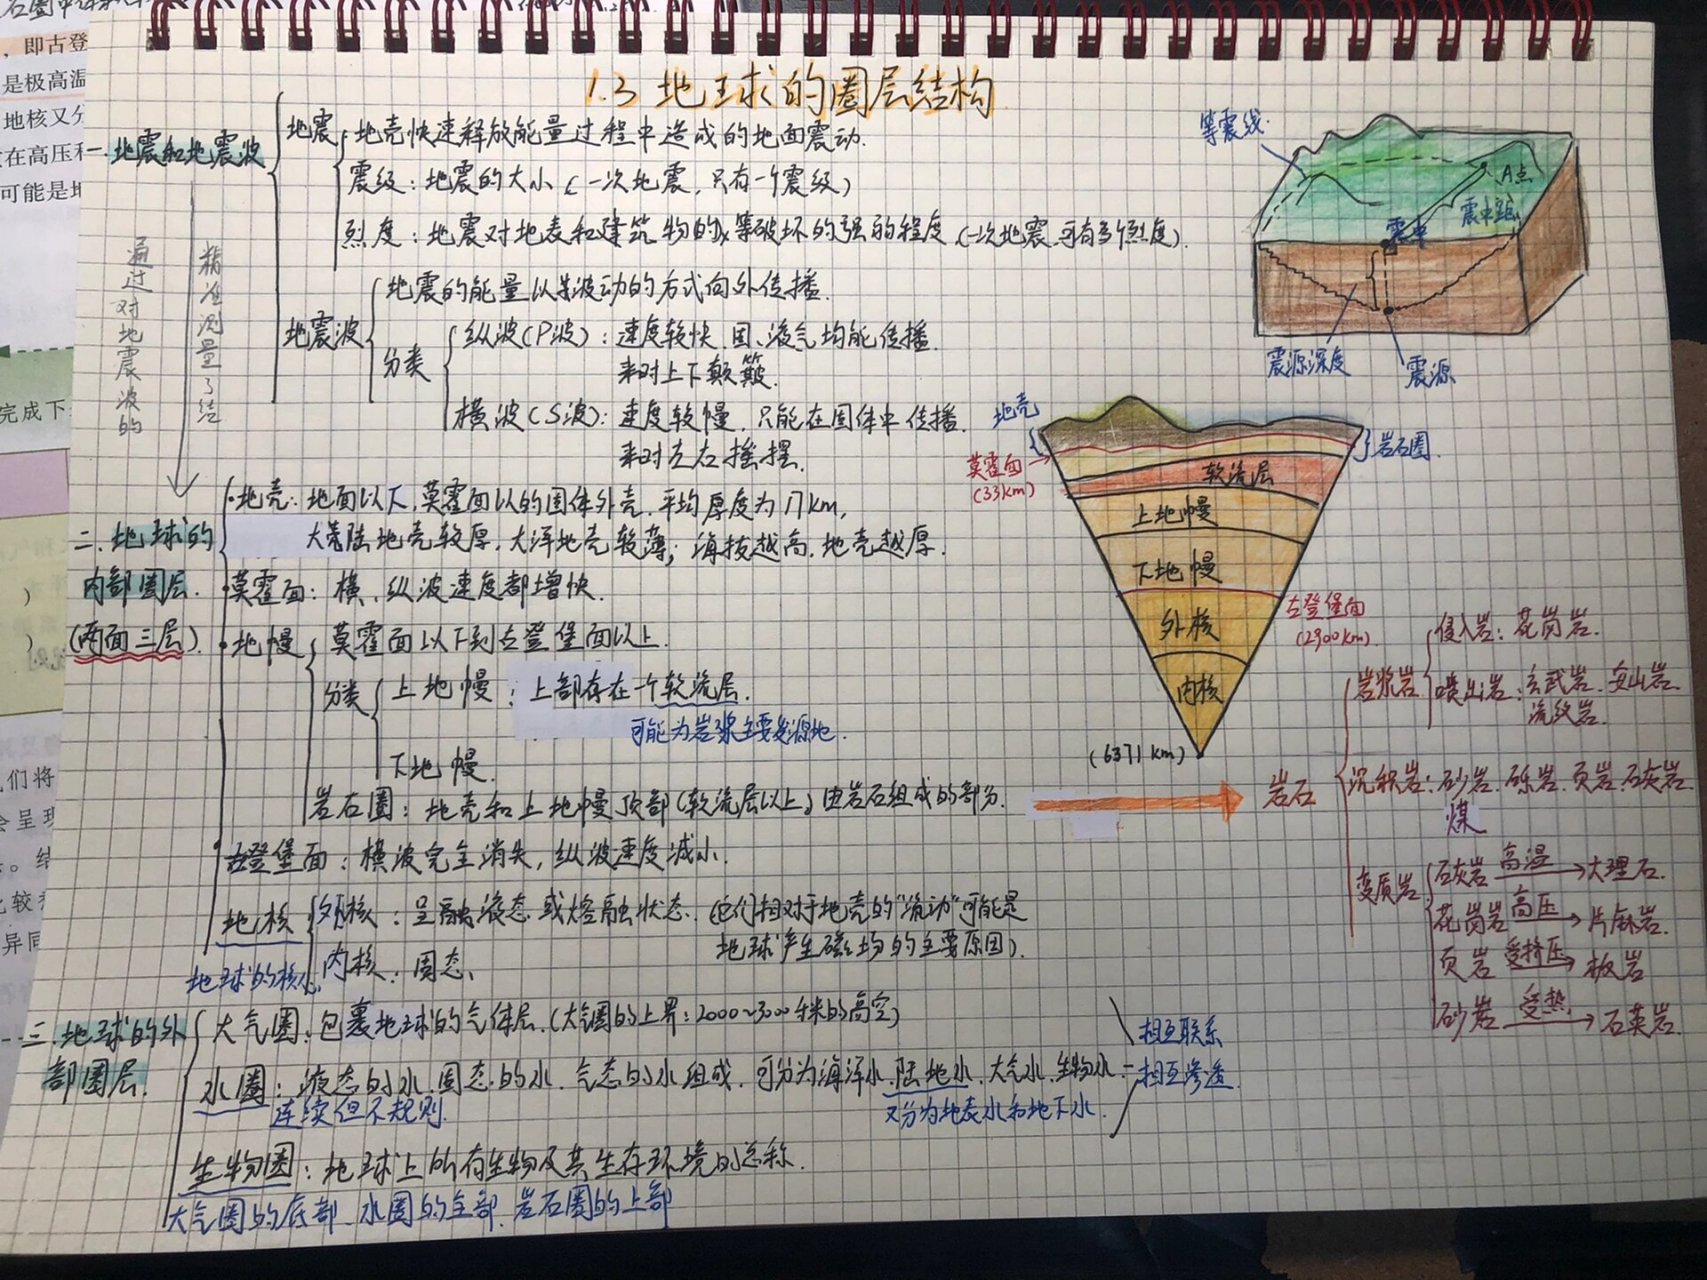 ，即古登
是极高温
地核又分
在高压和
可能是地
完成下
们将
会呈现
。结
比较
异同
1.3 地球的圈层结构
一.地震和地震波
地震
地壳快速释放能量过程中造成的地面震动.
震级：地震的大小（一次地震,只有一个震级）
烈度：地震对地表和建筑物的等破坏的强的程度（一次地震可有多个烈度）.
通过对地震波的
精准测量了结
地震波
地震的能量以波动的方式向外传播.
分类
纵波（P波）：速度较快.固、液气均能传播.
来时上下颠簸.
横波（S波）：速度较慢.只能在固体中传播.
来时左右摇摆.
等震线.
A点
震中距
震中
震源深度
震源
二.地球的
内部圈层.
（两面三层）.
地壳：地面以下,莫霍面以的固体外壳.平均厚度为17km,
大陆地壳较厚,大洋地壳较薄；海拔越高.地壳越厚.
莫霍面：横、纵波速度都增快.
地幔
莫霍面以下到古登堡面以上.
分类
上地幔：上部存在一个软流层.
可能为岩浆主要发源地.
下地幔.
岩石圈：地壳和上地幔顶部（软流层以上）由岩石组成的部分.
古登堡面：横波完全消失,纵波速度减小.
地核
地球的核心
外核：呈融液态或熔融状态.（他们相对于地壳的“流动”可能是
地球产生磁场的主要原因）.
内核：固态、
地壳
莫霍面
（33km）
岩石圈.
软流层
上地幔
下地幔
古登堡面
（2900km）
外核
内核
（6371km）
岩石
岩浆岩
侵入岩：花岗岩.
喷出岩：玄武岩.安山岩.
流纹岩.
沉积岩：砂岩.砾岩.页岩.石灰岩
煤
变质岩
石灰岩 高温 大理石.
花岗岩 高压 片麻岩.
页岩 受挤压 板岩
砂岩 受热 石英岩.
三.地球的外
部圈层.
大气圈：包裹地球的气体层.（大气圈的上界：2000~3000千米的高空）
水圈：液态的水.固态的水.气态的水组成.可分为海洋水.陆地水.大气水.生物水
连续但不规则.
又分为地表水和地下水.
相互联系
相互渗透.
生物圈：地球上所有生物及其生存环境的总称.
大气圈的底部.水圈的全部.岩石圈的上部